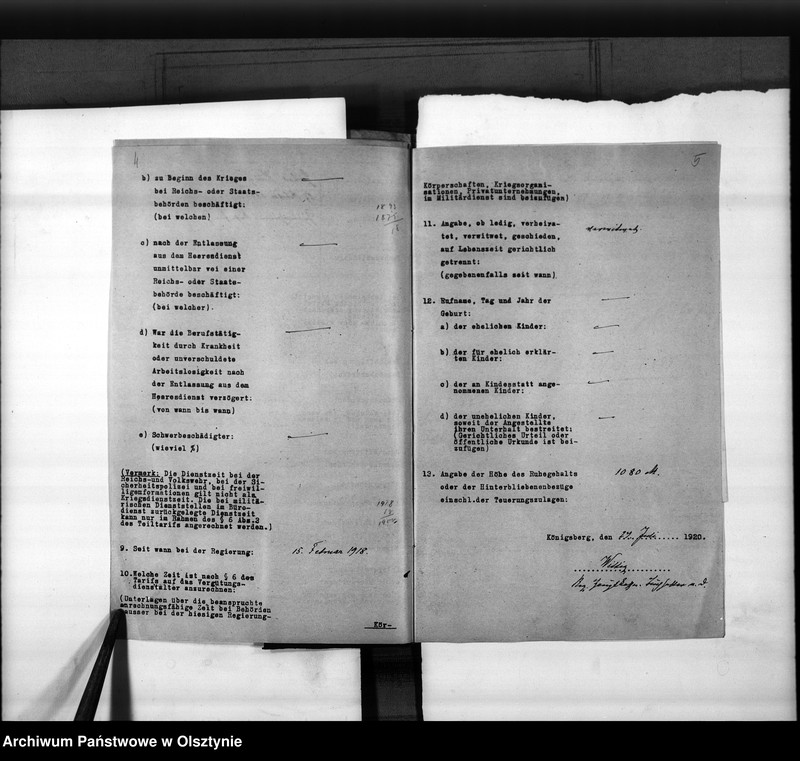 4
b) zu Beginn des Krieges
bei Reichs- oder Staats-
behörden beschäftigt:
(bei welchen)
c) nach der Entlassung
aus dem Heeresdienst
unmittelbar vei einer
Reichs- oder Staats-
behörde beschäftigt:
(bei welcher).
d) War die Berufstätig-
keit durch Krankheit
oder unverschuldete
Arbeitslosigkeit nach
der Entlassung aus dem
Heeresdienst verzögert:
(von wann bis wann)
e) Schwerbeschädigter:
(wieviel %)
(Vermerk: Die Dienstzeit bei der
Reichs-und Volkswehr, bei der Si-
cherheitspolizei und bei freiwil-
ligenformationen gilt nicht als
Kriegsdienstzeit. Die bei militä-
rischen Dienststellen im Büro-
dienst zurückgelegte Dienstzeit
kann nur im Rahmen des § 6 Abs.2
des Teiltarifs angerechnet werden.)
1918
9. Seit wann bei der Regierung:
15. Februar 1918.
10.Welche Zeit ist nach § 6 des
Tarifs auf das Vergütungs-
dienstalter anzurechnen:
(Unterlagen über die beanspruchte
anrechnungsfähige Zeit bei Behörden
ausser bei der hiesigen Regierung-
Kör-
5
Körperschaften, Kriegsorgani-
sationen, Privatunternehmungen,
im Militärdienst sind beizufügen)
11. Angabe, ob ledig, verheira-
tet, verwitwet, geschieden,
auf Lebenszeit gerichtlich
getrennt:
(gegebenenfalls seit wann)
verwitwet.
12. Rufname, Tag und Jahr der
Geburt:
a) der ehelichen Kinder:
b) der für ehelich erklär-
ten Kinder:
c) der an Kindesstatt ange-
nommenen Kinder:
d) der unehelichen Kinder,
soweit der Angestellte
ihren Unterhalt bestreitet:
(Gerichtliches Urteil oder
öffentliche Urkunde ist bei-
zufügen)
13. Angabe der Höhe des Ruhegehalts
oder der Hinterbliebenenbezüge
einschl.der Teuerungszulagen:
1080 M.
Königsberg, den
1920.
Archiwum Państwowe w Olsztynie